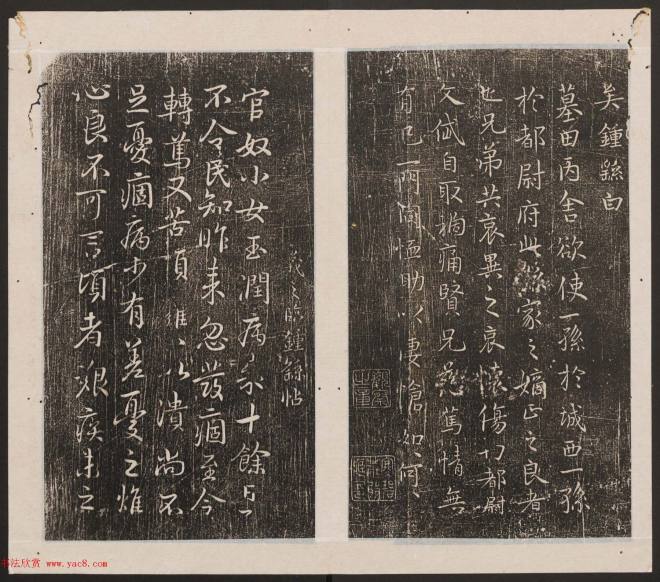 吴鍾繇白
墓田丙舍欲使一孫於城西一孫
於都尉府此繇家之嫡正之良者
也兄弟共哀異之哀懷傷切都尉
文岱自取禍痛賢兄慜篤情無
有已一門同恤助以悽愴如何如何
羲之臨鍾繇帖
官奴小女玉潤病來十餘日
不令民知昨來忽發痼至今
轉篤又苦頭癰以潰尚不
足憂痼病少有差憂之燋
心良不可言頃者艱疾未之
书法欣赏 @ www.yac8.com